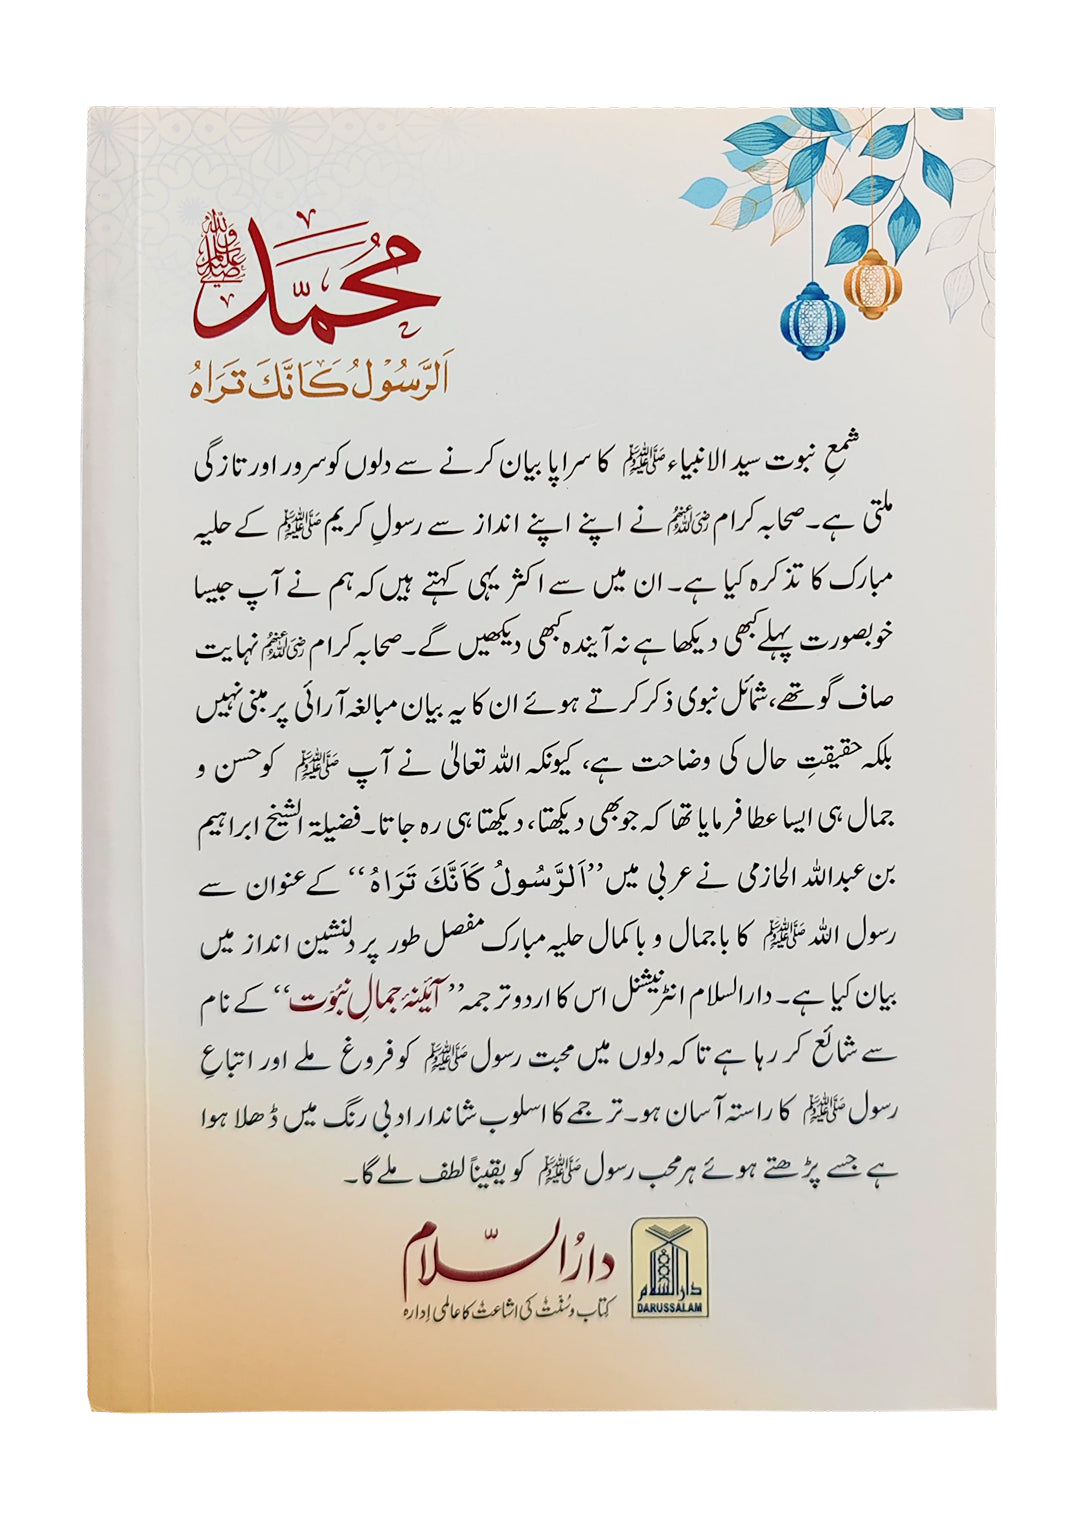 محمد صلی اللہ علیہ وسلم
اَلرَّسُوْلُ كَاَنَّكَ تَرَاهُ
شمعِ نبوت سید الانبیاء ﷺ کا سراپا بیان کرنے سے دلوں کو سرور اور تازگی
ملتی ہے۔ صحابہ کرام رضی اللہ عنہم نے اپنے اپنے انداز سے رسولِ کریم ﷺ کے حلیہ
مبارک کا تذکرہ کیا ہے۔ ان میں سے اکثر یہی کہتے ہیں کہ ہم نے آپ جیسا
خوبصورت پہلے کبھی دیکھا ہے نہ آیندہ کبھی دیکھیں گے۔ صحابہ کرام رضی اللہ عنہم نہایت
صاف گو تھے، شمائل نبوی ذکر کرتے ہوئے ان کا یہ بیان مبالغہ آرائی پر مبنی نہیں
بلکہ حقیقتِ حال کی وضاحت ہے، کیونکہ اللہ تعالیٰ نے آپ ﷺ کو حسن و
جمال ہی ایسا عطا فرمایا تھا کہ جو بھی دیکھتا، دیکھتا ہی رہ جاتا۔ فضیلۃ الشیخ ابراہیم
بن عبداللہ الحازمی نے عربی میں ’’اَلرَّسُولُ كَاَنَّكَ تَرَاهُ‘‘ کے عنوان سے
رسول اللہ ﷺ کا باجمال و باکمال حلیہ مبارک مفصل طور پر دلنشین انداز میں
بیان کیا ہے۔ دارالسلام انٹرنیشنل اس کا اردو ترجمہ ’’آئینۂ جمالِ نبوّت‘‘ کے نام
سے شائع کر رہا ہے تاکہ دلوں میں محبت رسول ﷺ کو فروغ ملے اور اتباعِ
رسول ﷺ کا راستہ آسان ہو۔ ترجمے کا اسلوب شاندار ادبی رنگ میں ڈھلا ہوا
ہے جسے پڑھتے ہوئے ہر محب رسول ﷺ کو یقیناً لطف ملے گا۔
دارُالسّلام
کتاب و سُنّت کی اشاعت کا عالمی اِدارہ
دارالسلام
DARUSSALAM